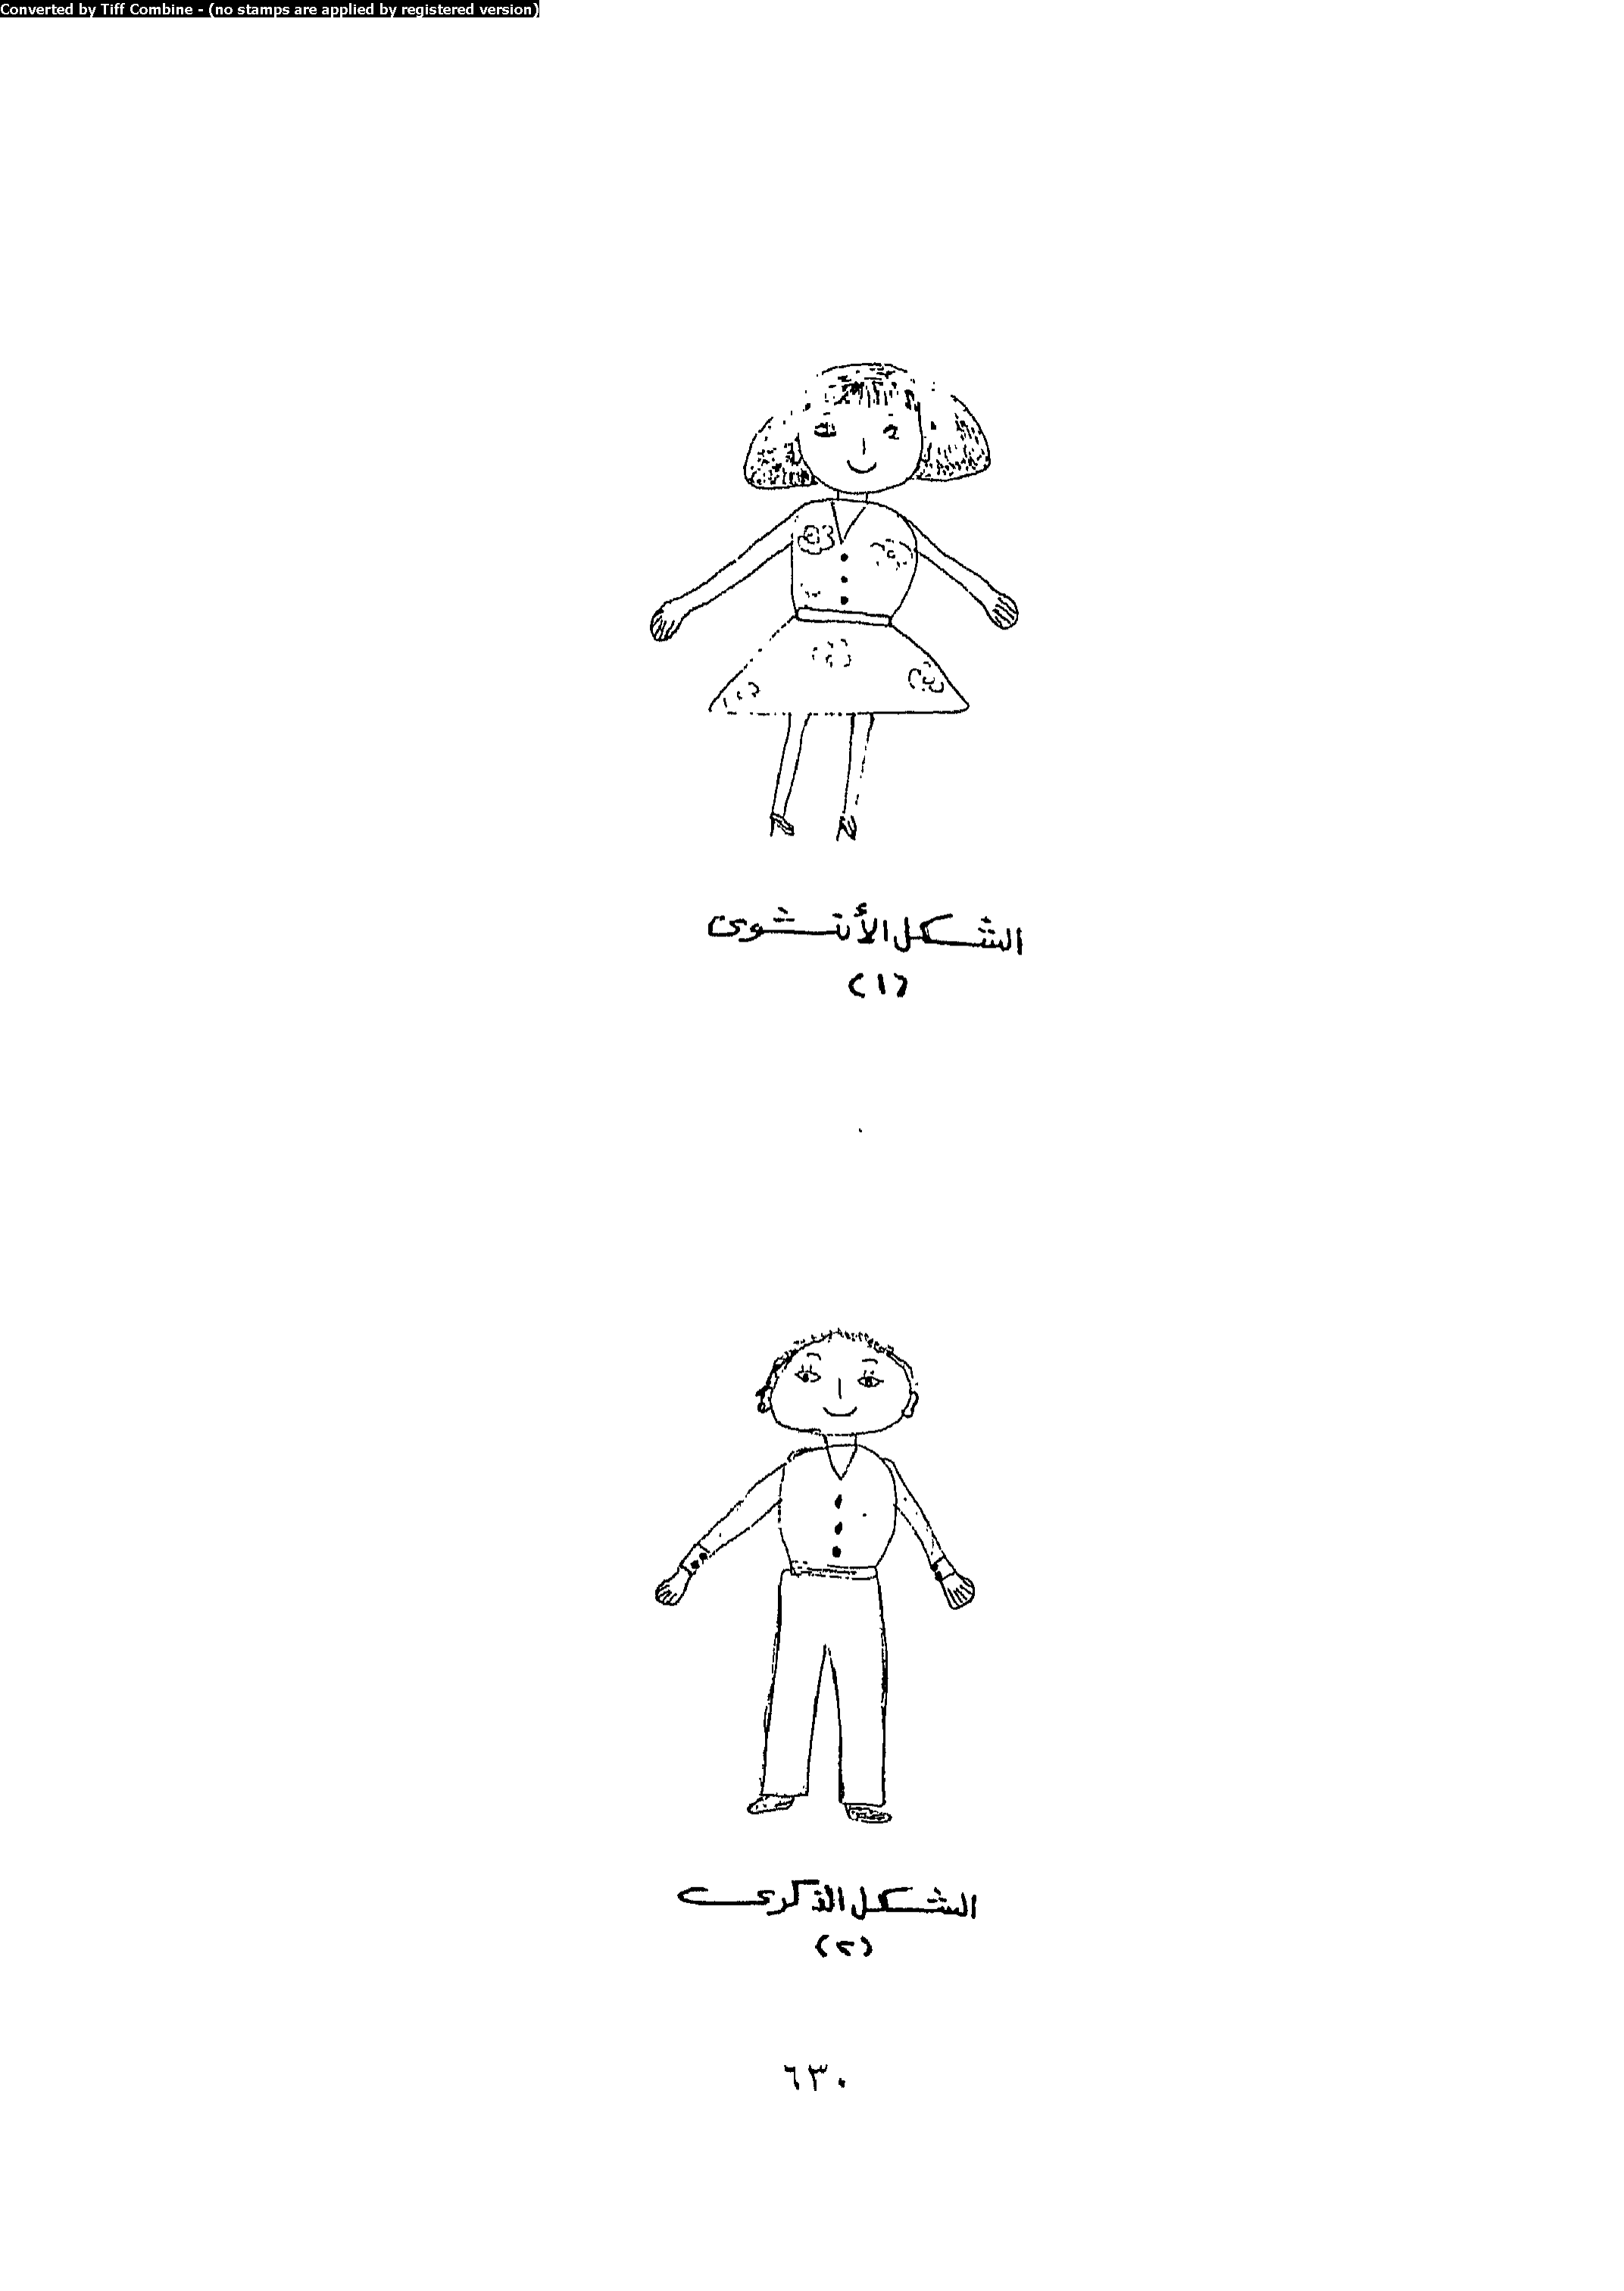 Converted by Tiff Combine - (no stamps are applied by registered version)
الشكل الأنثوى
(١)
الشكل الذكرى
(٢)
٦٣٠